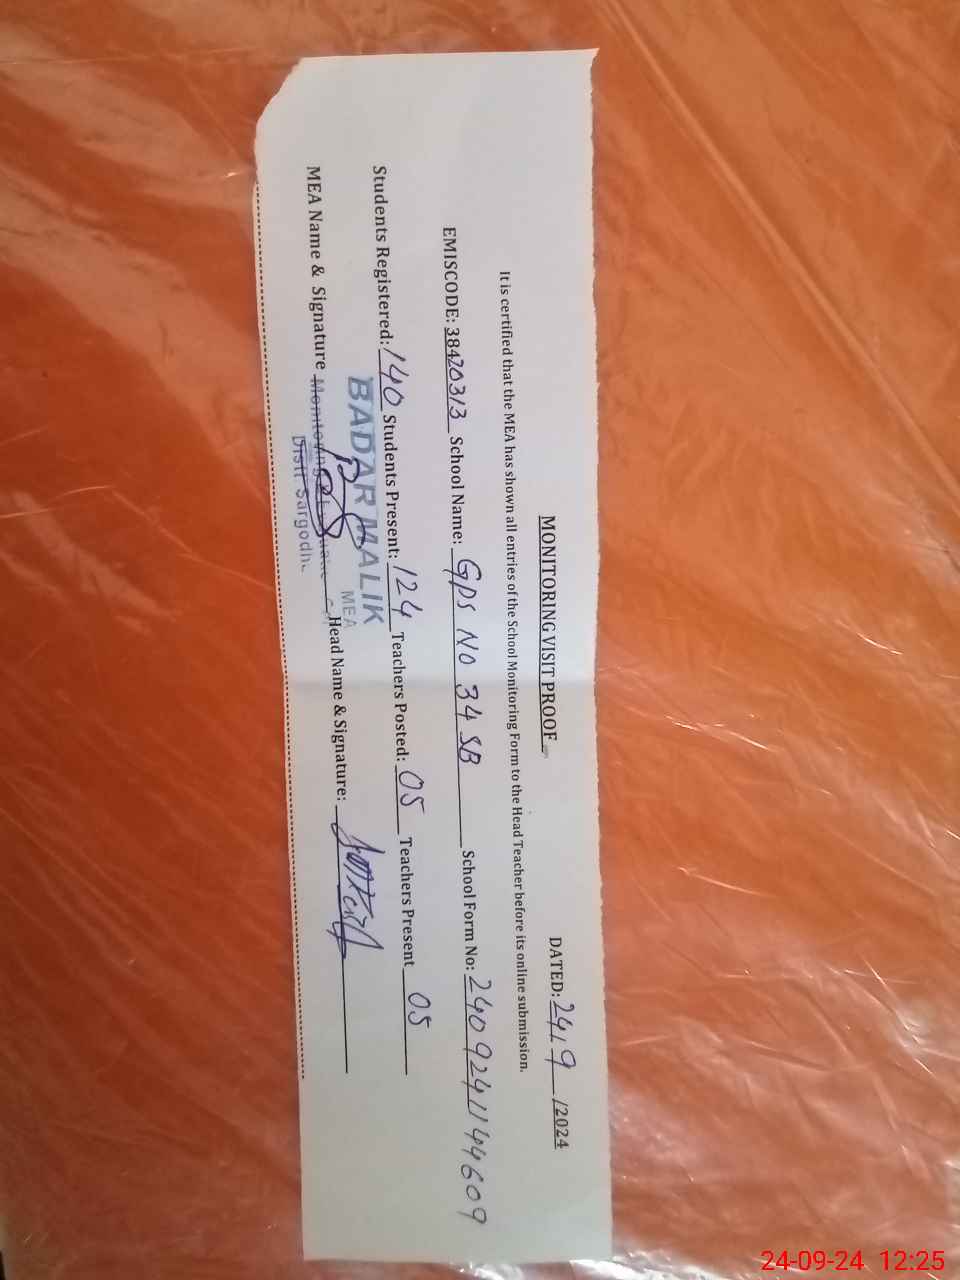 MONITORING VISIT PROOF
DATED: 24.9 /2024
It is certified that the MEA has shown all entries of the School Monitoring Form to the Head Teacher before its online submission.
EMISCODE: 38420313 School Name: GPS NO 34 SB School Form No: 240924114 4609
Students Registered: 140 Students Present: 124 Teachers Posted: 05 Teachers Present 05
BADAR MALIK
MEA
MEA Name & Signature Head Name & Signature:
Distt. Sargodh
24-09-24 12:25